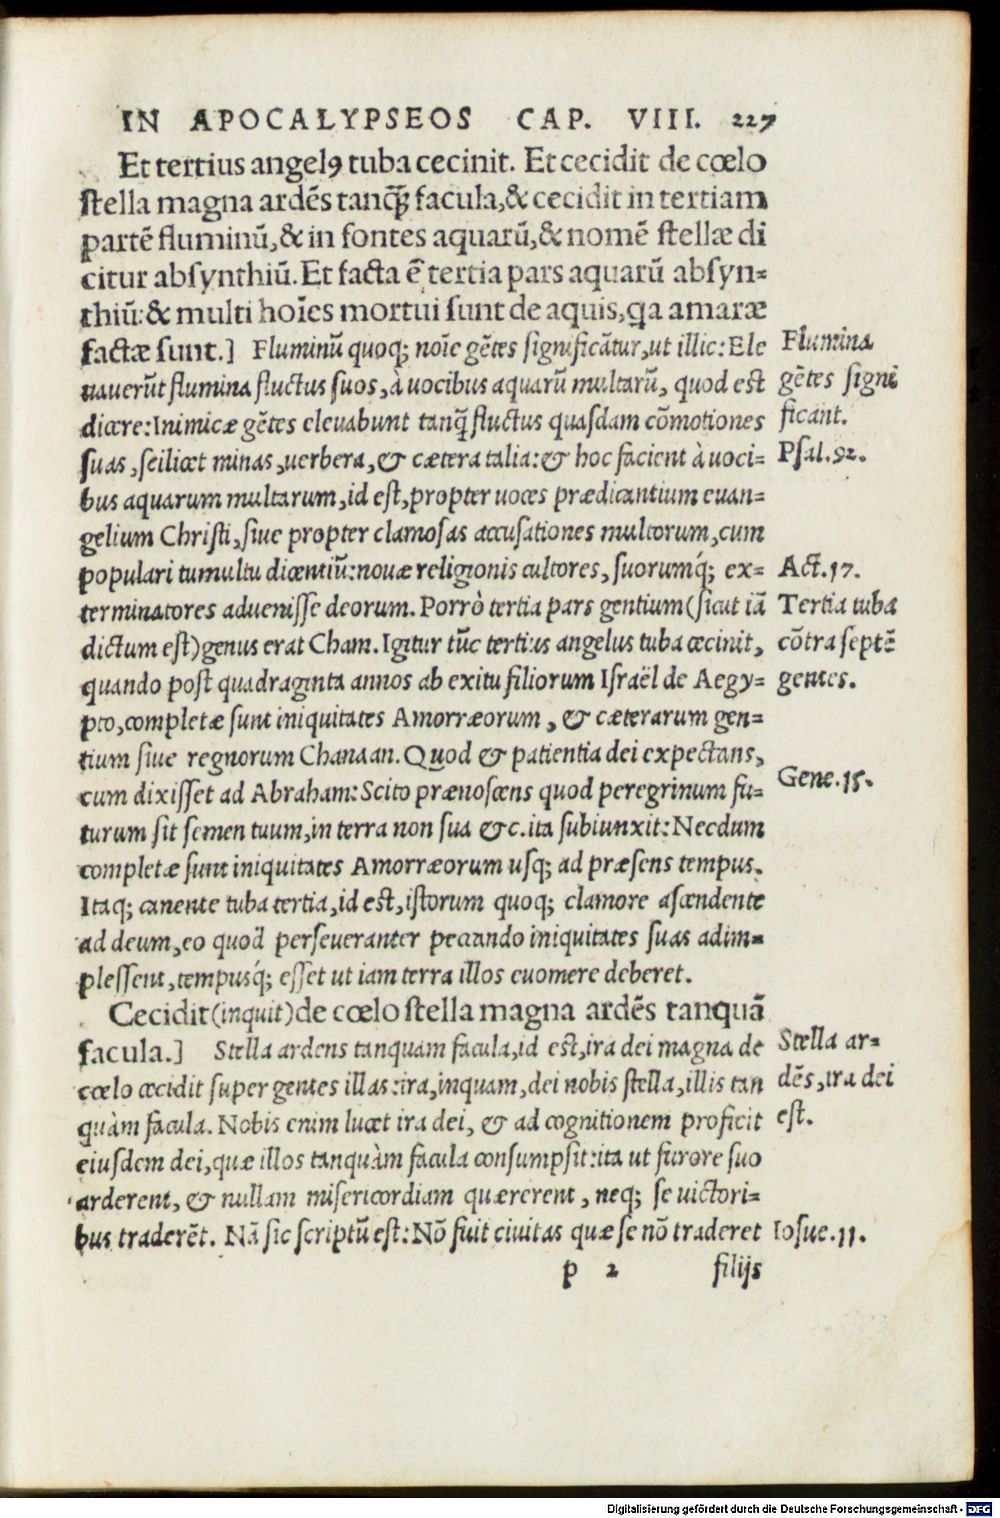 IN APOCALYPSEOS CAP. VIII. 227
Et tertius angelꝰ tuba cecinit. Et cecidit de cœlo
stella magna ardẽs tanꝗ̃ facula, & cecidit in tertiam
partẽ fluminũ, & in fontes aquarũ, & nomẽ stellæ di
citur absynthiũ. Et facta ẽ tertia pars aquarũ absyn-
thiũ: & multi hoĩes mortui sunt de aquis, ꝗa amaræ
factæ sunt.] Fluminũ quoq; noĩe gẽtes significãtur, ut illic: Ele
uauerũt flumina fluctus suos, à uocibus aquarũ multarũ, quod est
dicere: Inimicæ gẽtes eleuabunt tanꝗ̃ fluctus quasdam cõmotiones
suas, scilicet minas, uerbera, & cætera talia: & hoc facient à uoci-
bus aquarum multarum, id est, propter uoces prædicantium euan-
gelium Christi, siue propter clamosas accusationes multorum, cum
populari tumultu dicentiũ: nouæ religionis cultores, suorumq́; ex-
terminatores aduenisse deorum. Porrò tertia pars gentium (sicut iã
dictum est) genus erat Cham. Igitur tũc tertius angelus tuba cecinit,
quando post quadraginta annos ab exitu filiorum Israël de Aegy-
pto, completæ sunt iniquitates Amorræorum, & cæterarum gen-
tium siue regnorum Chanaan. Quod & patientia dei expectans,
cum dixisset ad Abraham: Scito prænoscens quod peregrinum fu-
turum sit semen tuum, in terra non sua &c. ita subiunxit: Necdum
completæ sunt iniquitates Amorræorum usq; ad præsens tempus.
Itaq; canente tuba tertia, id est, istorum quoq; clamore ascendente
ad deum, eo quod perseueranter peccando iniquitates suas adim-
plessent, tempusq́; esset ut iam terra illos euomere deberet.
Cecidit (inquit) de cœlo stella magna ardẽs tanquã
facula.] Stella ardens tanquam facula, id est, ira dei magna de
cœlo cecidit super gentes illas: ira, inquam, dei nobis stella, illis tan
quàm facula. Nobis enim lucet ira dei, & ad cognitionem proficit
eiusdem dei, quæ illos tanquàm facula consumpsit: ita ut furore suo
arderent, & nullam misericordiam quærerent, neq; se uictori-
bus traderẽt. Nã sic scriptũ est: Nõ fuit ciuitas quæ se nõ traderet
p 2 filijs
Flumina
gẽtes signi
ficant.
Psal. 92.
Act. 17.
Tertia tuba
cõtra septẽ
gentes.
Gene. 15.
Stella ar-
dẽs, ira dei
est.
Iosue. 11.
Digitalisierung gefördert durch die Deutsche Forschungsgemeinschaft - DFG